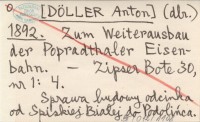 [DÖLLER Anton] (dłn.)
1892. Zum Weiterausbau
der Popradthaler Eisen-
bahn. – Zipser Bote 30,
nr 1: 4.
Sprawa budowy odcinka
od Spiskiej Białej do Podolińca.